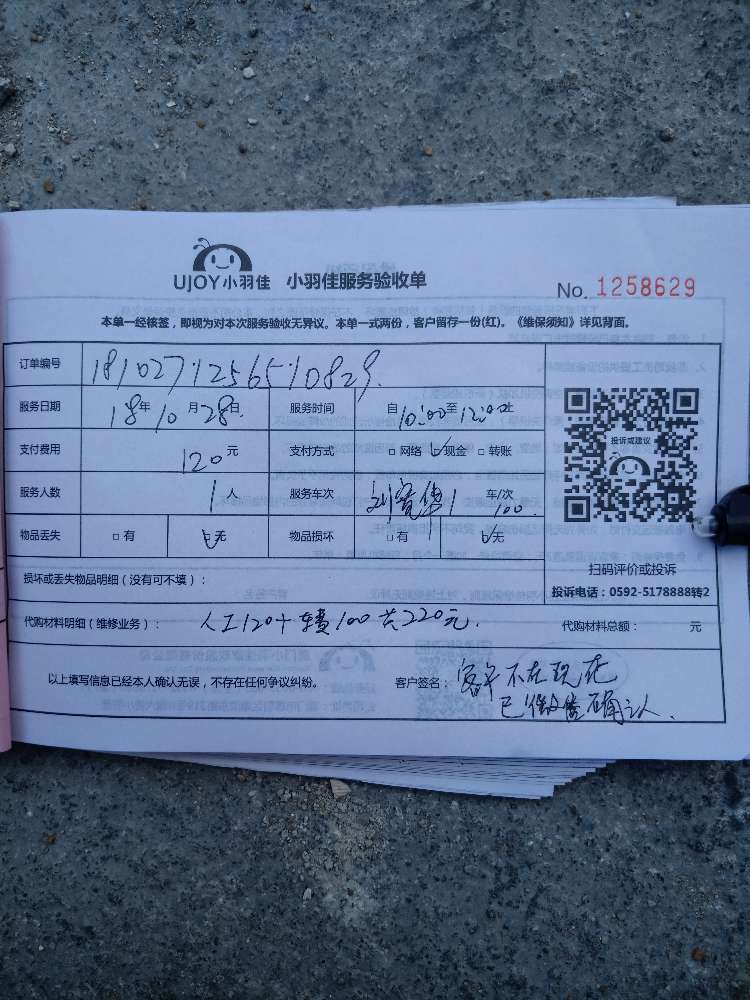 UJOY小羽佳 小羽佳服务验收单
No. 1258629
本单一经核签，即视为对本次服务验收无异议。本单一式两份，客户留存一份(红)。《维保须知》详见背面。
订单编号 1810271256510829
服务日期 18年10月28日 服务时间 自10:00至12:00止
支付费用 120元 支付方式 □网络 ☑现金 □转账
服务人数 1人 服务车次 1 车/次 100
物品丢失 □有 ☑无 物品损坏 □有 ☑无
投诉或建议
扫码评价或投诉
投诉电话：0592-5178888转2
损坏或丢失物品明细（没有可不填）：
代购材料明细（维修业务）： 人工120+车费100共220元. 代购材料总额： 元
以上填写信息已经本人确认无误，不存在任何争议纠纷。 客户签名： 客户不在现在
已微信确认.